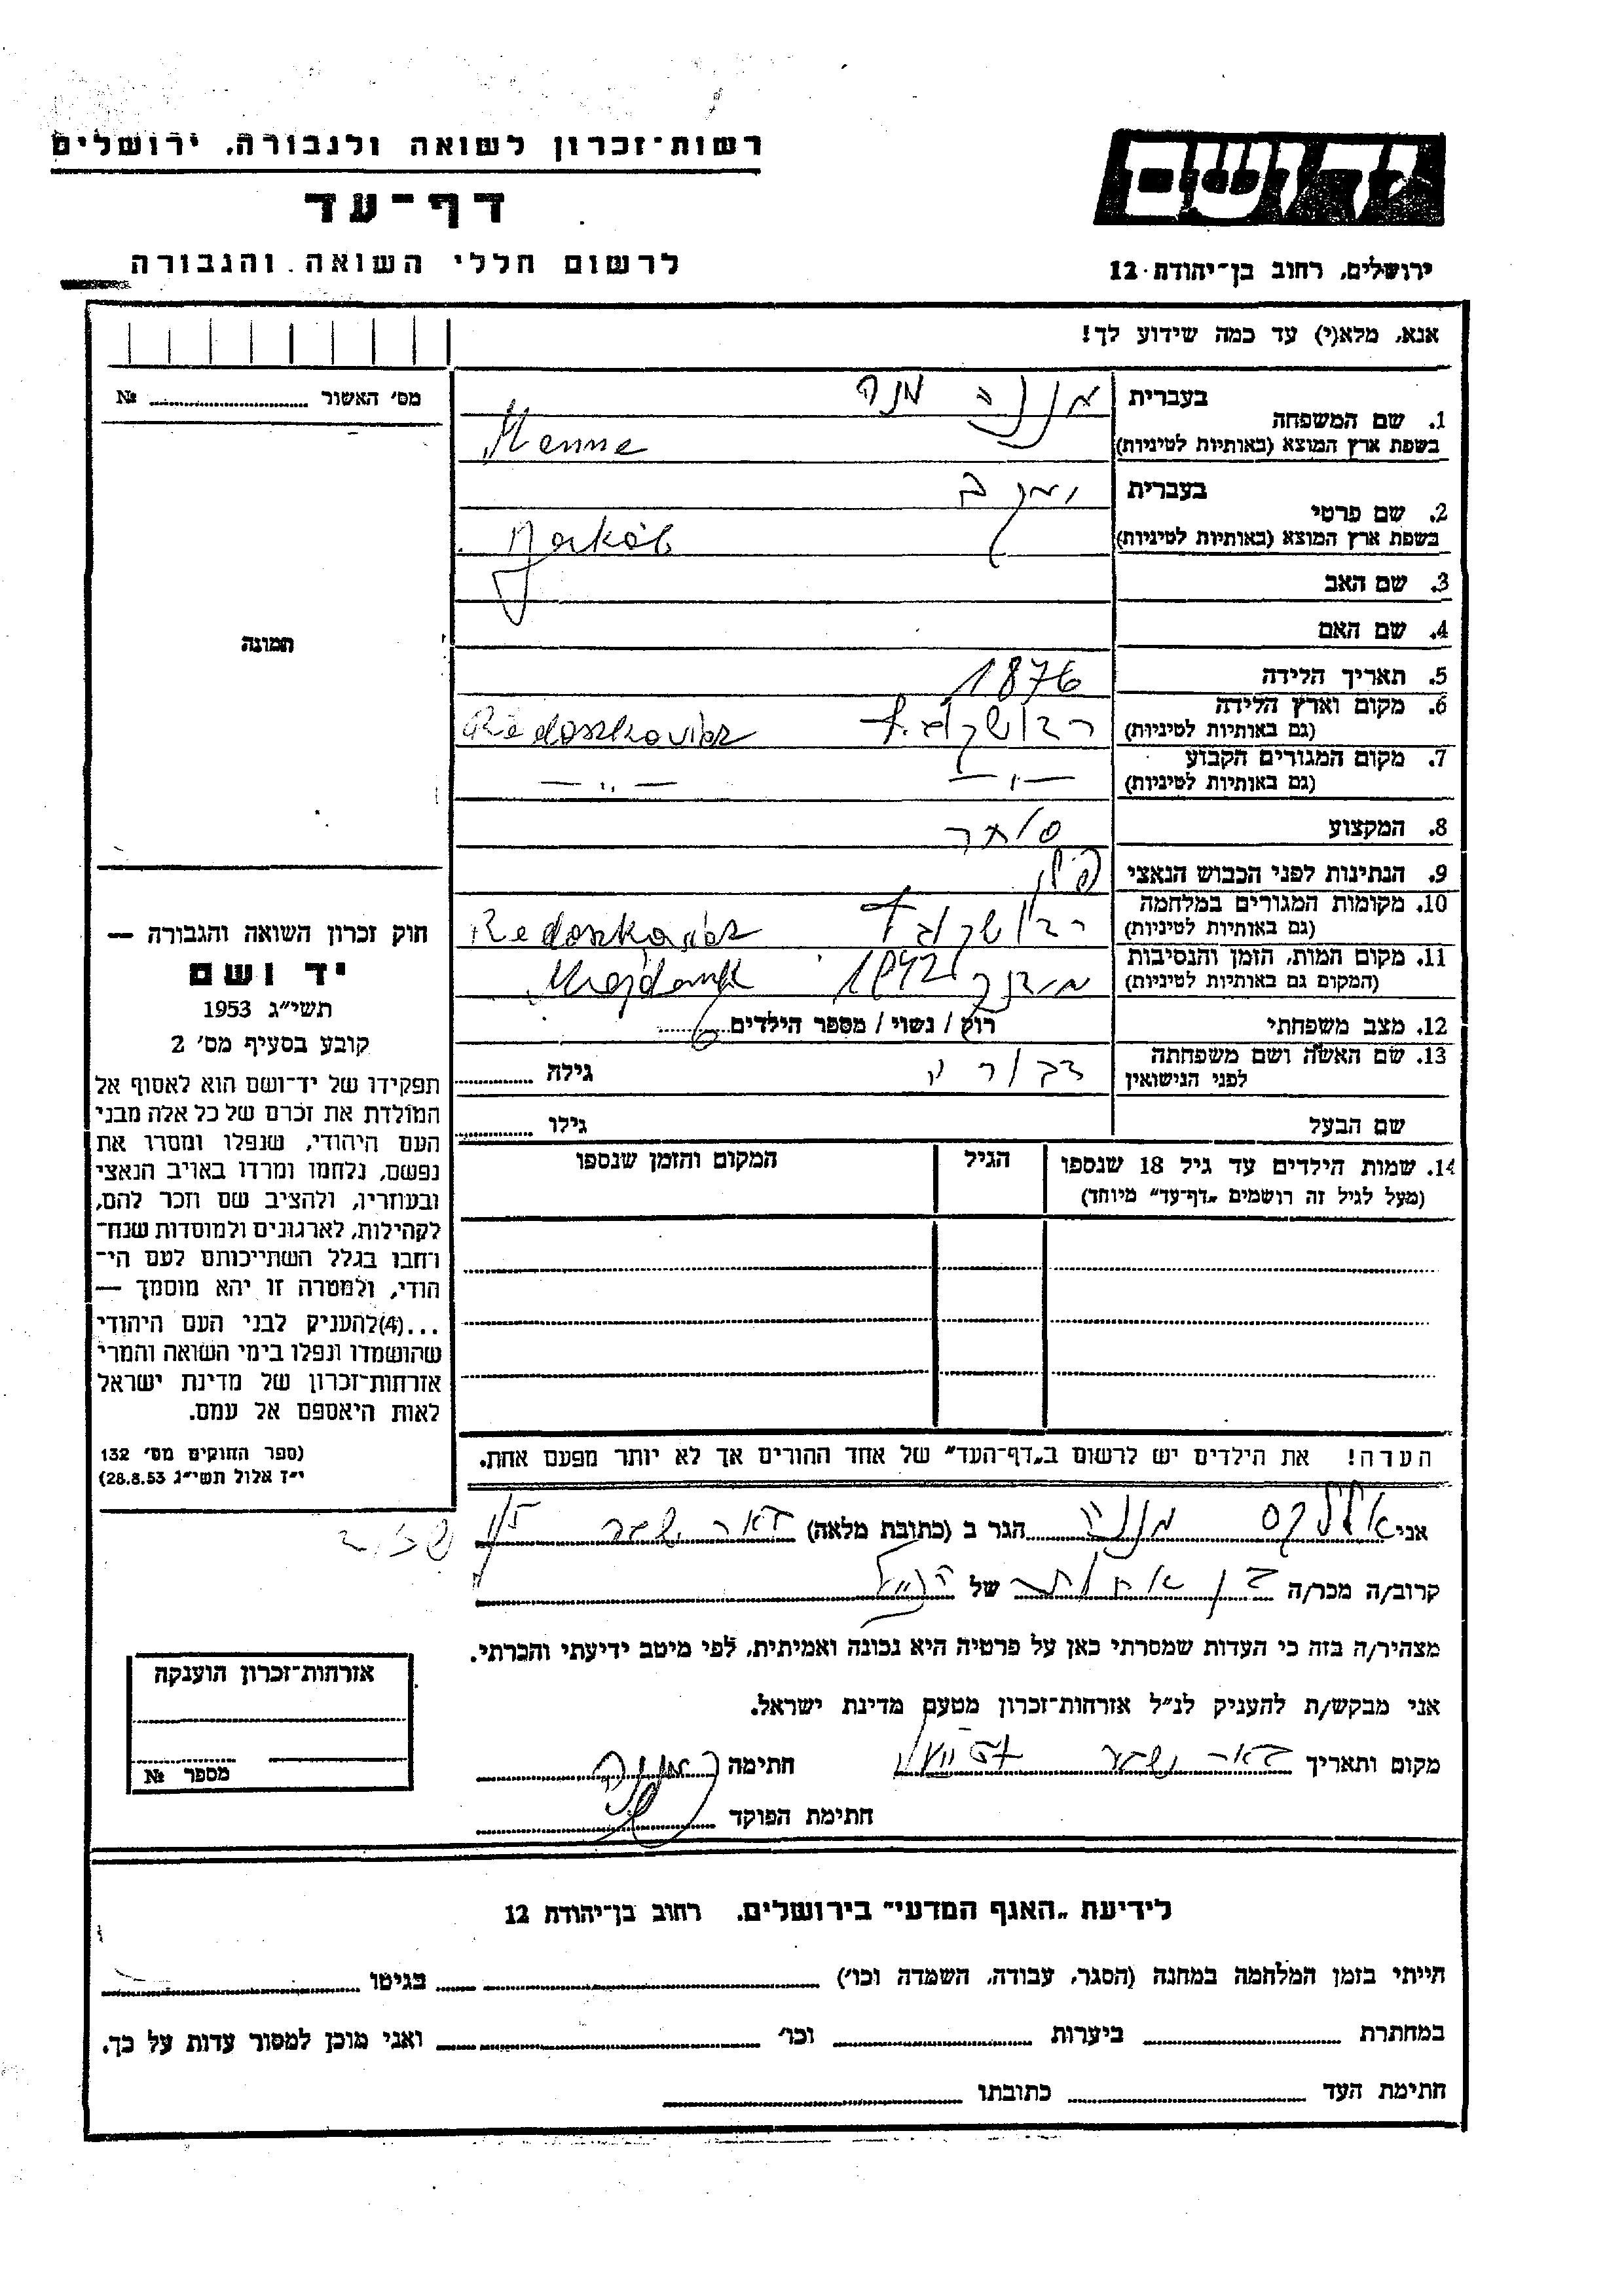 רשות־זכרון לשואה ולגבורה, ירושלים
דף־עד
לרשום חללי השואה והגבורה
יד ושם
ירושלים, רחוב בן־יהודה 12
אנא, מלא(י) עד כמה שידוע לך!
מס׳ האשור № 
תמונה
1. שם המשפחה בעברית מנה מנה
בשפת ארץ המוצא (באותיות לטיניות) Menne
2. שם פרטי בעברית יעקב
בשפת ארץ המוצא (באותיות לטיניות) Jakób
3. שם האב
4. שם האם
5. תאריך הלידה 1876
6. מקום וארץ הלידה
(גם באותיות לטיניות) Redoszkovicz
7. מקום המגורים הקבוע
(גם באותיות לטיניות) — ,, — — ,, —
8. המקצוע סוחר
9. הנתינות לפני הכבוש הנאצי פולין
10. מקומות המגורים במלחמה
(גם באותיות לטיניות) Redoszkovicz
11. מקום המות, הזמן והנסיבות
(המקום גם באותיות לטיניות) 1942 Majdanek
12. מצב משפחתי רוק / נשוי / מספר הילדים 6
13. שם האשה ושם משפחתה
לפני הנישואין דבורה גילה
שם הבעל גילו
14. שמות הילדים עד גיל 18 שנספו הגיל המקום והזמן שנספו
(מעל לגיל זה רושמים „דף־עד” מיוחד)
חוק זכרון השואה והגבורה —
יד ושם
תשי״ג 1953
קובע בסעיף מס׳ 2
תפקידו של יד־ושם הוא לאסוף אל
המולדת את זכרם של כל אלה מבני
העם היהודי, שנפלו ומסרו את
נפשם, נלחמו ומרדו באויב הנאצי
ובעוזריו, ולהציב שם וזכר להם,
לקהילות, לארגונים ולמוסדות שנח־
רחבו בגלל השתייכותם לעם הי־
הודי, ולמטרה זו יהא מוסמך —
...(4)להעניק לבני העם היהודי
שהושמדו ונפלו בימי השואה והמרי
אזרחות־זכרון של מדינת ישראל
לאות היאספם אל עמם.
(ספר החוקים מס׳ 132
י״ז אלול תשי״ג 28.8.53)
הערה! את הילדים יש לרשום ב„דף־העד” של אחד ההורים אך לא יותר מפעם אחת.
אני מנה הגר ב (כתובת מלאה) באר שבע
קרוב/ה מכר/ה בן אחותו של הנ״ל
מצהיר/ה בזה כי העדות שמסרתי כאן על פרטיה היא נכונה ואמיתית, לפי מיטב ידיעתי והכרתי.
אני מבקש/ת להעניק לנ״ל אזרחות־זכרון מטעם מדינת ישראל.
מקום ותאריך באר שבע חתימה
חתימת הפוקד
אזרחות־זכרון הוענקה
מספר №
לידיעת „האגף המדעי” בירושלים, רחוב בן־יהודה 12
הייתי בזמן המלחמה במחנה (הסגר, עבודה, השמדה וכו׳) בגיטו
במחתרת ביערות וכו׳ ואני מוכן למסור עדות על כך.
חתימת העד כתובתו